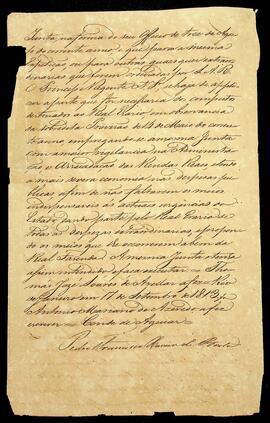 Junta, na forma de seu Officio de treze de Agos
to do corrente anno, e que para a mesma
expedição, ou para outras quaesquer extraor
dinarias que forem ordenadas por S. A. R.
o Principe Regente N. S., se haja de appli
car a parte que for necessaria do computo
destinado ao Real Erario em observancia
da sobredita Provisão de 18 de Maio do corren
te anno empregando-se a mesma Junta
com a maior vigilancia na Administra
ção e Arrecadação das Rendas Reaes
a mais severa economia nas despezas pu
blicas afim de não faltarem os meios
indispensaveis ás actuaes urgencias do
Estado
despezas extraordinarias, e propon
do os meios que lhe occorrerem a bem da
Real Fazenda. A mesma Junta o tenha
assim entendido e faça executar. Tho
maz Joze Soares de Avellar a fez Rio
de Janeiro em 17 de Setembro de 1813
Antonio Marianno de Azevedo a fez
escrever. Conde de Aguiar
Pedro Francisco